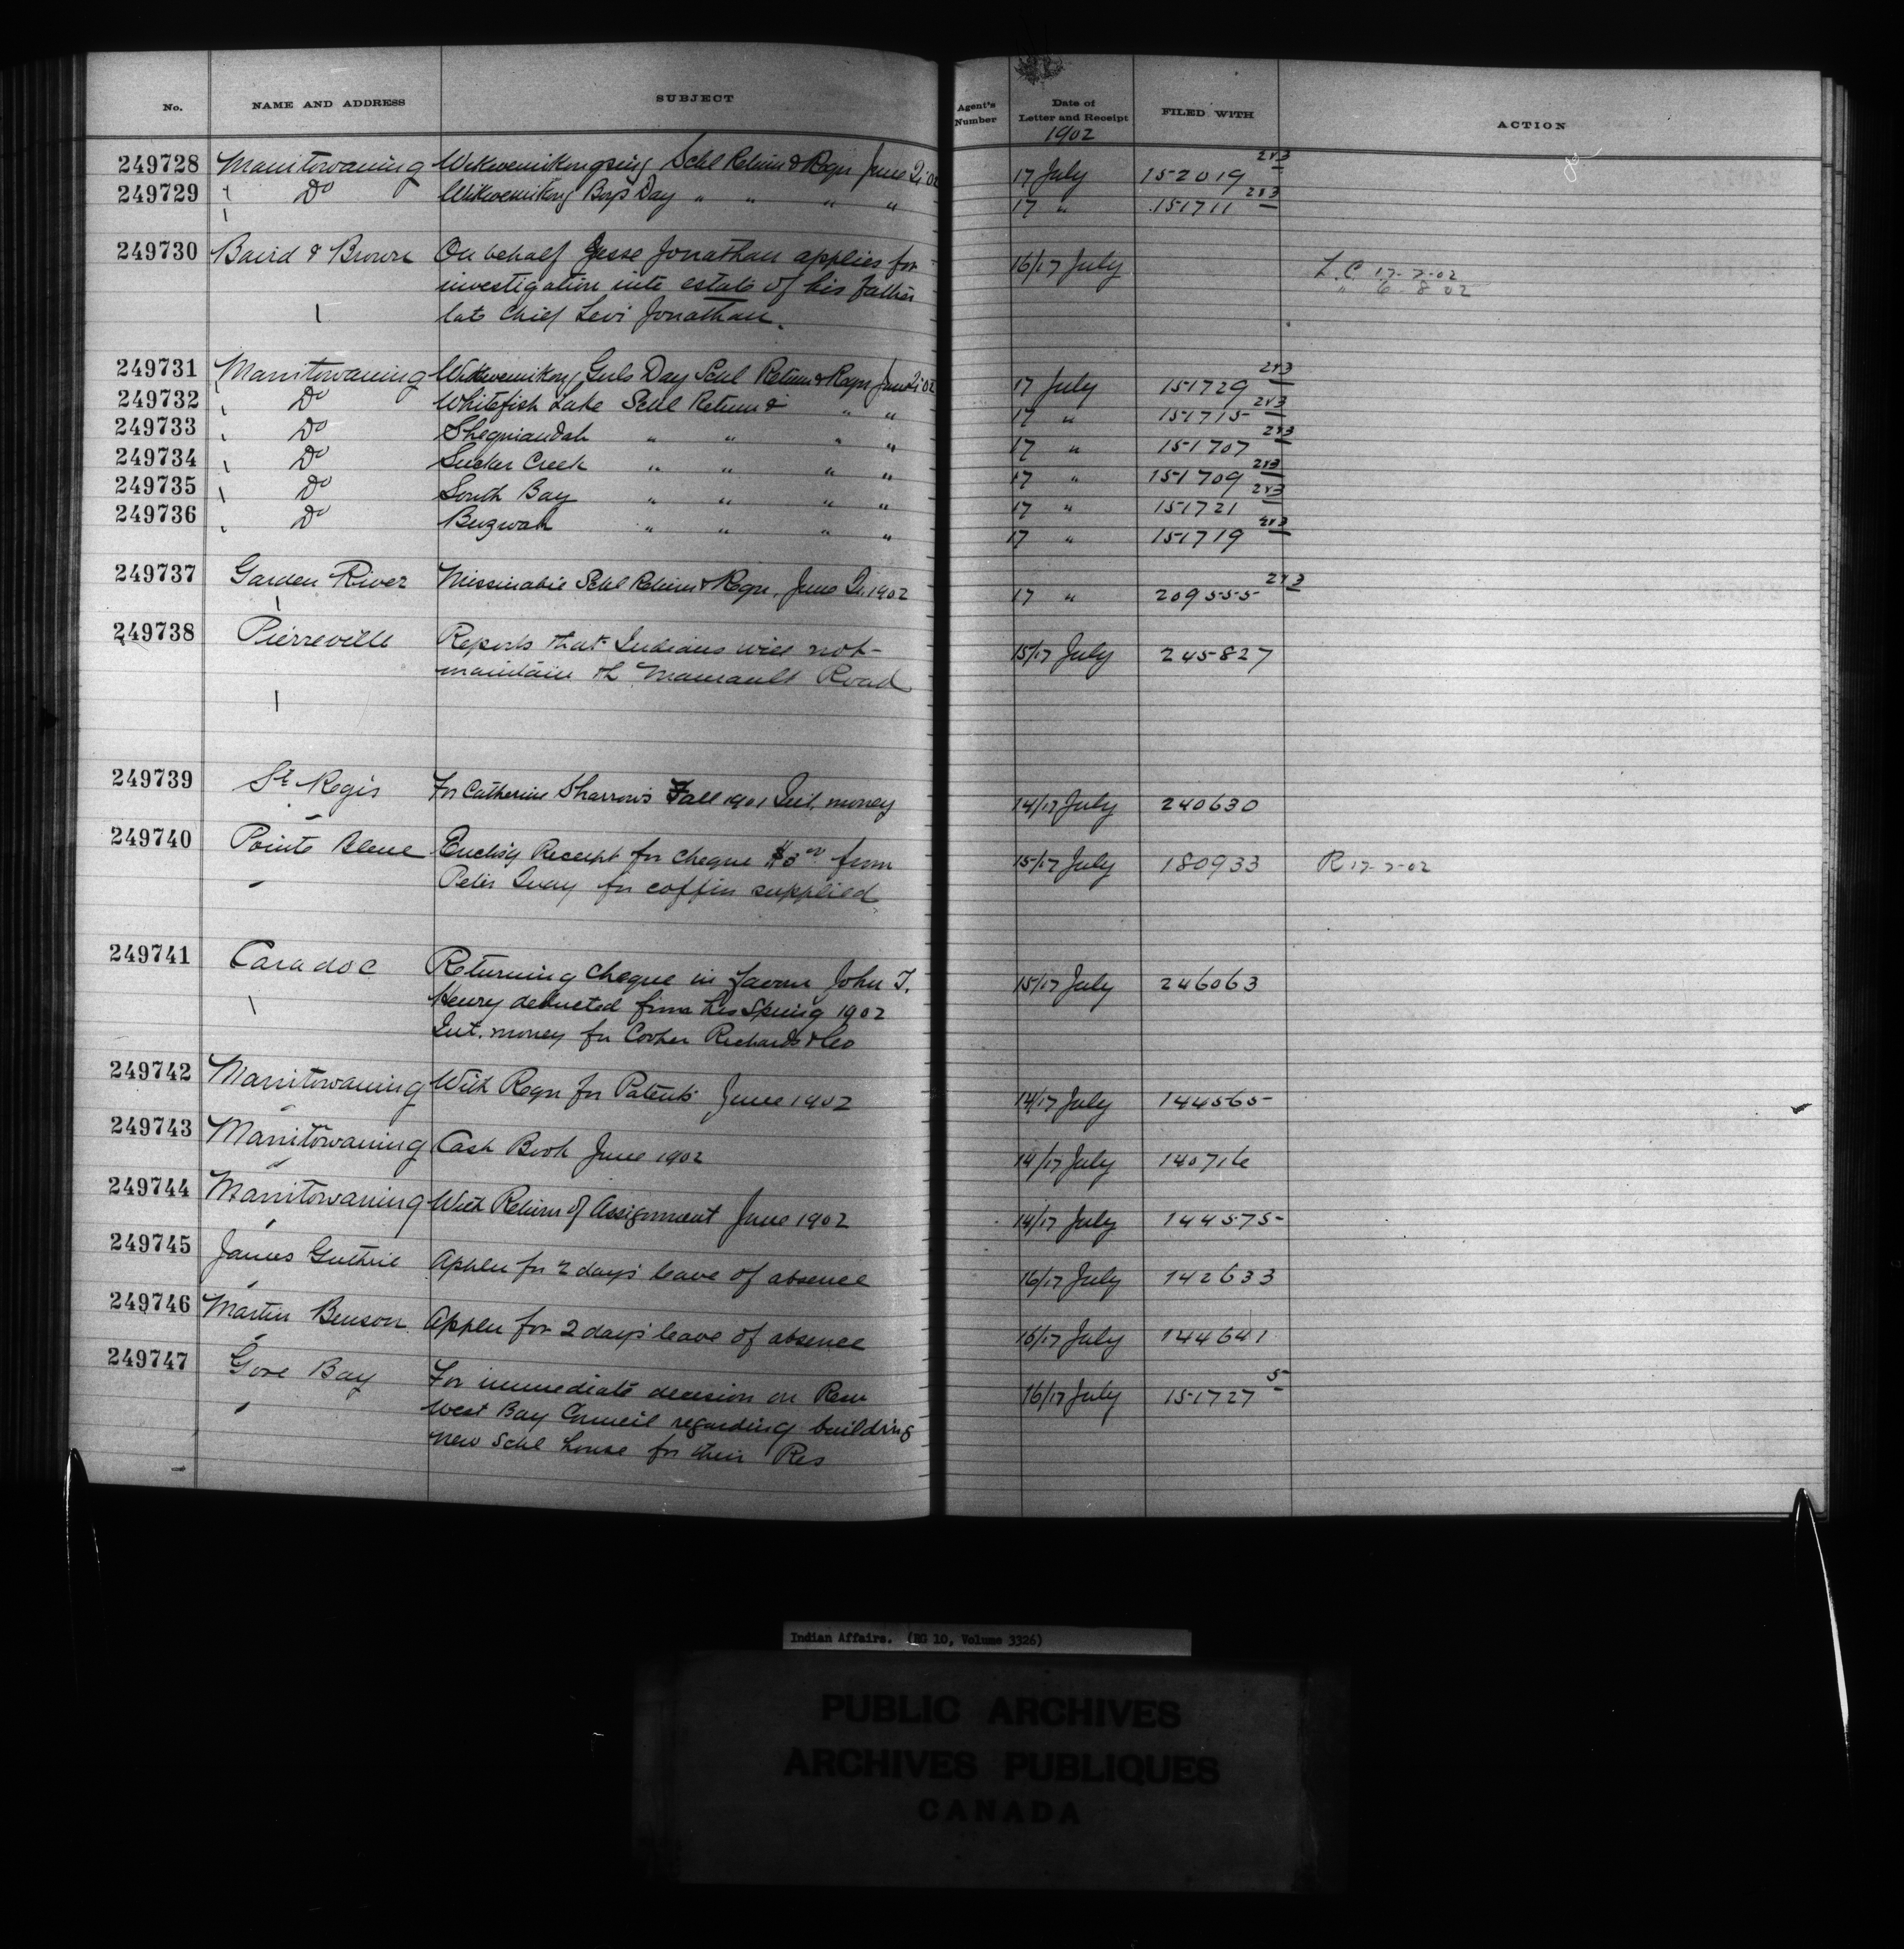 No. NAME AND ADDRESS SUBJECT Agent's Number Date of Letter and Receipt FILED WITH ACTION
1902
249728 Manitowaning Wikwemikongsing Schl Return & Reqn June Qr 02 17 July 152019 2&3
249729 Do Wikwemikong Boys Day " " " " 17 " 151711 2&3
249730 Baird & Brown On behalf Jesse Jonathan applies for 16/17 July L.C. 17-7-02
investigation into estate of his father " 6-8-02
late Chief Levi Jonathan.
249731 Manitowaning Wikwemikong Girls Day Schl Return & Reqn June Qr 02 17 July 151729 2&3
249732 Do Whitefish Lake Schl Return & " " 17 " 151715 2&3
249733 Do Shegniandah " " " " 17 " 151707 2&3
249734 Do Sucker Creek " " " " 17 " 151709 2&3
249735 Do South Bay " " " " 17 " 151721 2&3
249736 Do Buzwah " " " " 17 " 151719 2&3
249737 Garden River Missinabie Schl Return & Reqn. June Qr. 1902 17 " 209555 2&3
249738 Pierreville Reports that Indians will not 15/17 July 245827
maintain th Road
249739 St Regis For Catherine Sharrow's Fall 1901 Int. money 14/17 July 240630
249740 Pointe Bleue Encls'g Receipt for cheque $3.00 from 15/17 July 180933 R 17-7-02
Peter for coffin supplied
249741 Caradoc Returning cheque in favour John T. 15/17 July 246063
Henry deducted from his Spring 1902
Int. money for Richards & Co
249742 Manitowaning With Reqn for Patents June 1902 14/17 July 144565
249743 Manitowaning Cash Book June 1902 14/17 July 140716
249744 Manitowaning With Return of Assignment June 1902 14/17 July 144575
249745 James Guthrie Applen for 2 days' leave of absence 16/17 July 142633
249746 Martin Benson Applen for 2 days' leave of absence 16/17 July 144641
249747 Gore Bay For immediate decision on Resn 16/17 July 151727 5
West Bay Council regarding building
new Schl house for their Res
Indian Affairs. (RG 10, Volume 3326)
PUBLIC ARCHIVES
ARCHIVES PUBLIQUES
CANADA